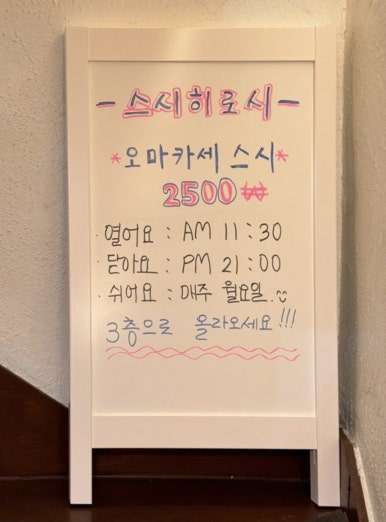 -스시히로시-
*오마카세 스시*
2500₩
· 열어요 : AM 11:30
· 닫아요 : PM 21:00
· 쉬어요 : 매주 월요일.
3층으로 올라오세요!!!